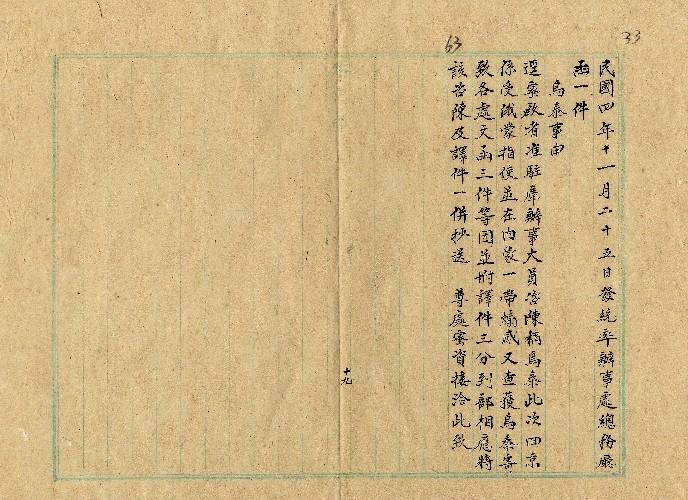 33
63
民國四年十一月二十五日發統率辦事處總務廳
函一件
烏泰事由
逕密啟者准駐庫辦事大員咨陳稱烏泰此次回京
係受俄蒙指使並在內蒙一帶煽惑又查獲烏泰寄
致各處文函三件等因並附譯件三分到部相應將
該咨陳及譯件一併抄送 尊處密資接洽此致
十九